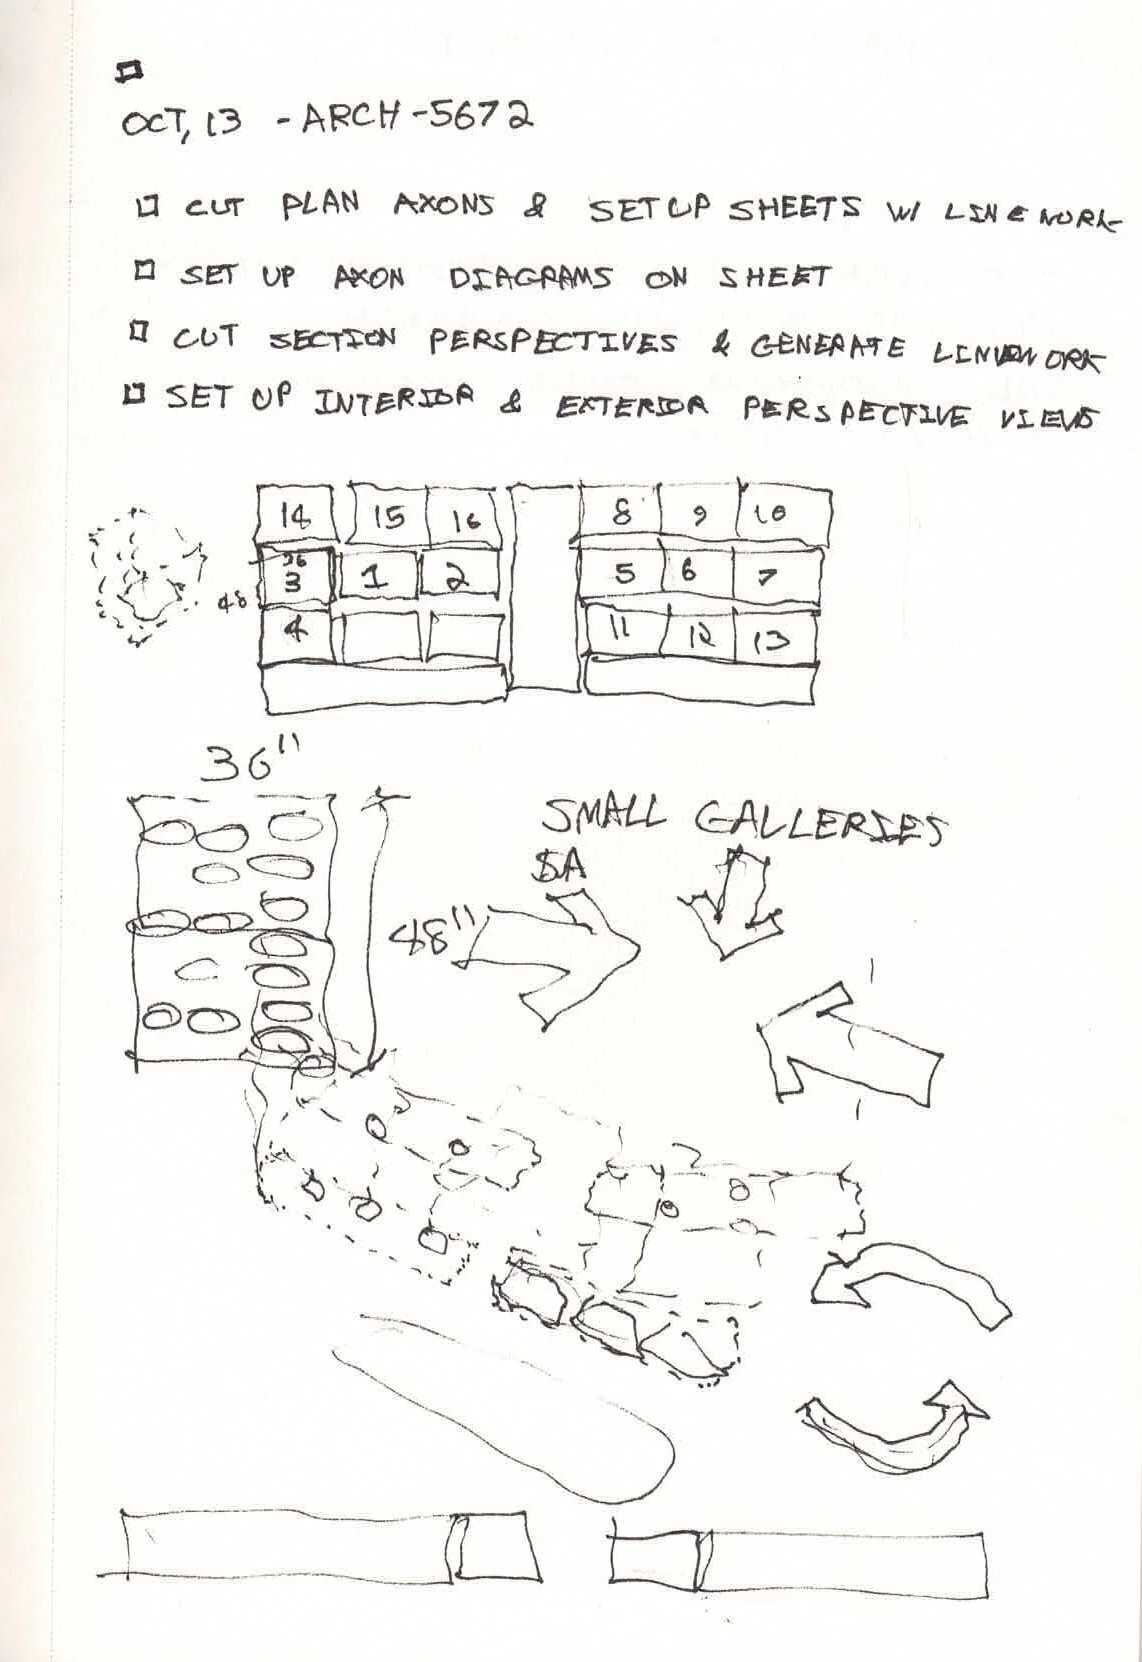 OCT, 13 - ARCH - 5672
CUT PLAN AXONS & SET UP SHEETS W/ LINEWORK
SET UP AXON DIAGRAMS ON SHEET
CUT SECTION PERSPECTIVES & GENERATE LINEWORK
SET UP INTERIOR & EXTERIOR PERSPECTIVE VIEWS
14 15 16 8 9 10
36
3 1 2 5 6 7
48
4 11 12 13
36"
SMALL GALLERIES
48"